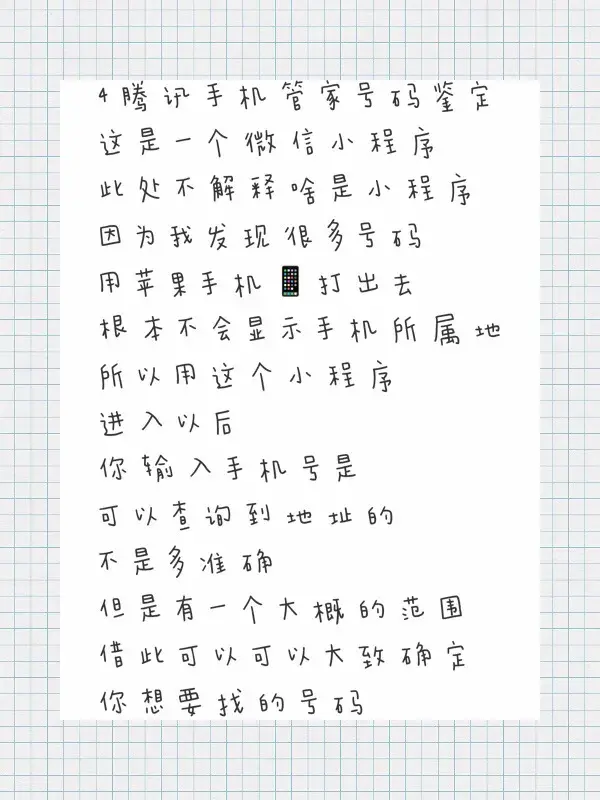 4腾讯手机管家号码鉴定
这是一个微信小程序
此处不解释啥是小程序
因为我发现很多号码
用苹果手机📱打出去
根本不会显示手机所属地
所以用这个小程序
进入以后
你输入手机号是
可以查询到地址的
不是多准确
但是有一个大概的范围
借此可以可以大致确定
你想要找的号码